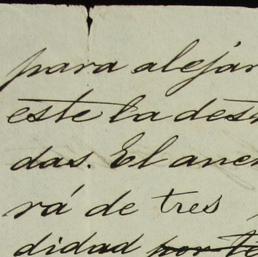 para alejar
este la des
das. El ane
rá de tres
didad por te